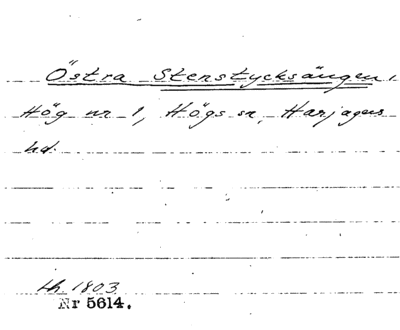 Östra Stenstycksängen,
Hög nr 1, Högs sn, Harjagers
hd.
Lh. 1803
Nr 5614.